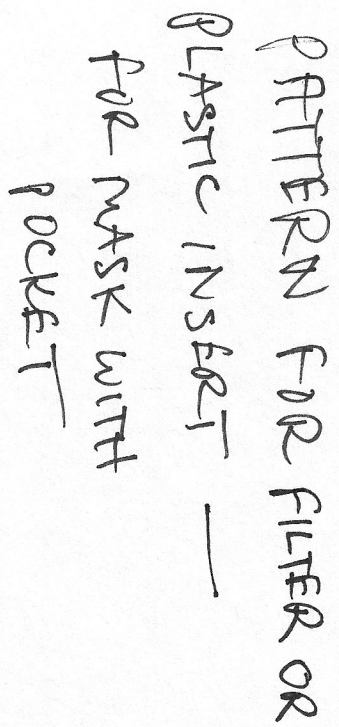 PATTERN FOR FILTER OR
PLASTIC INSERT —
FOR MASK WITH
POCKET